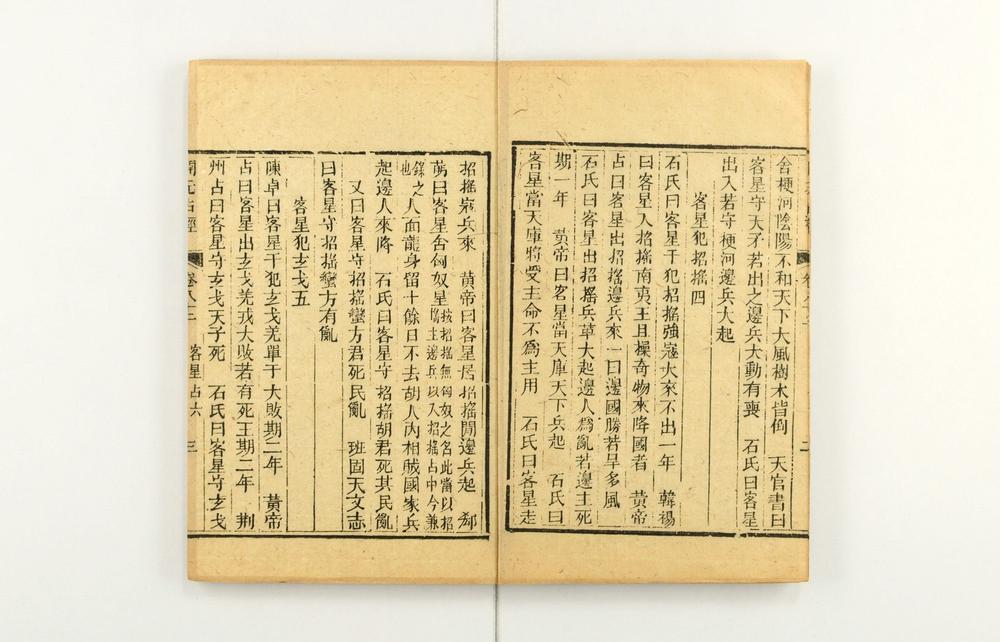 舍梗河陰陽不和天下大風樹木皆倒 天官書曰
客星守天矛若出之邊兵大動有喪 石氏曰客星
出入若守梗河邊兵大起
客星犯招搖四
石氏曰客星干犯招搖強寇大來不出一年 韓楊
曰客星入招搖南夷王且操奇物來降國者 黃帝
占曰客星出招搖邊兵來一曰邊國勝若旱多風
石氏曰客星出招搖兵革大起邊人為亂若邊主死
期一年 黃帝曰客星當天庫天下兵起 石氏曰
客星當天庫將受主命不為主用 石氏曰客星走
招搖寇兵來 黃帝曰客星居招搖間邊兵起 郗
萌曰客星舍匈奴星按招搖無匈奴之名此當以招搖主邊兵以入招搖占中今兼錄之也
人面龍身留十餘日不去胡人內相賊國家兵
起邊人來降 石氏曰客星守招搖胡君死其民亂
又曰客星守招搖蠻方君死民亂 班固天文志
曰客星守招搖蠻方有亂
客星犯玄戈五
陳卓曰客星干犯玄戈羌單于大敗期二年 黃帝
占曰客星出玄戈羌戎大敗若有死王期二年 荆
州占曰客星守玄戈天子死 石氏曰客星守玄戈
開元占經 卷八十二 客星占六 三